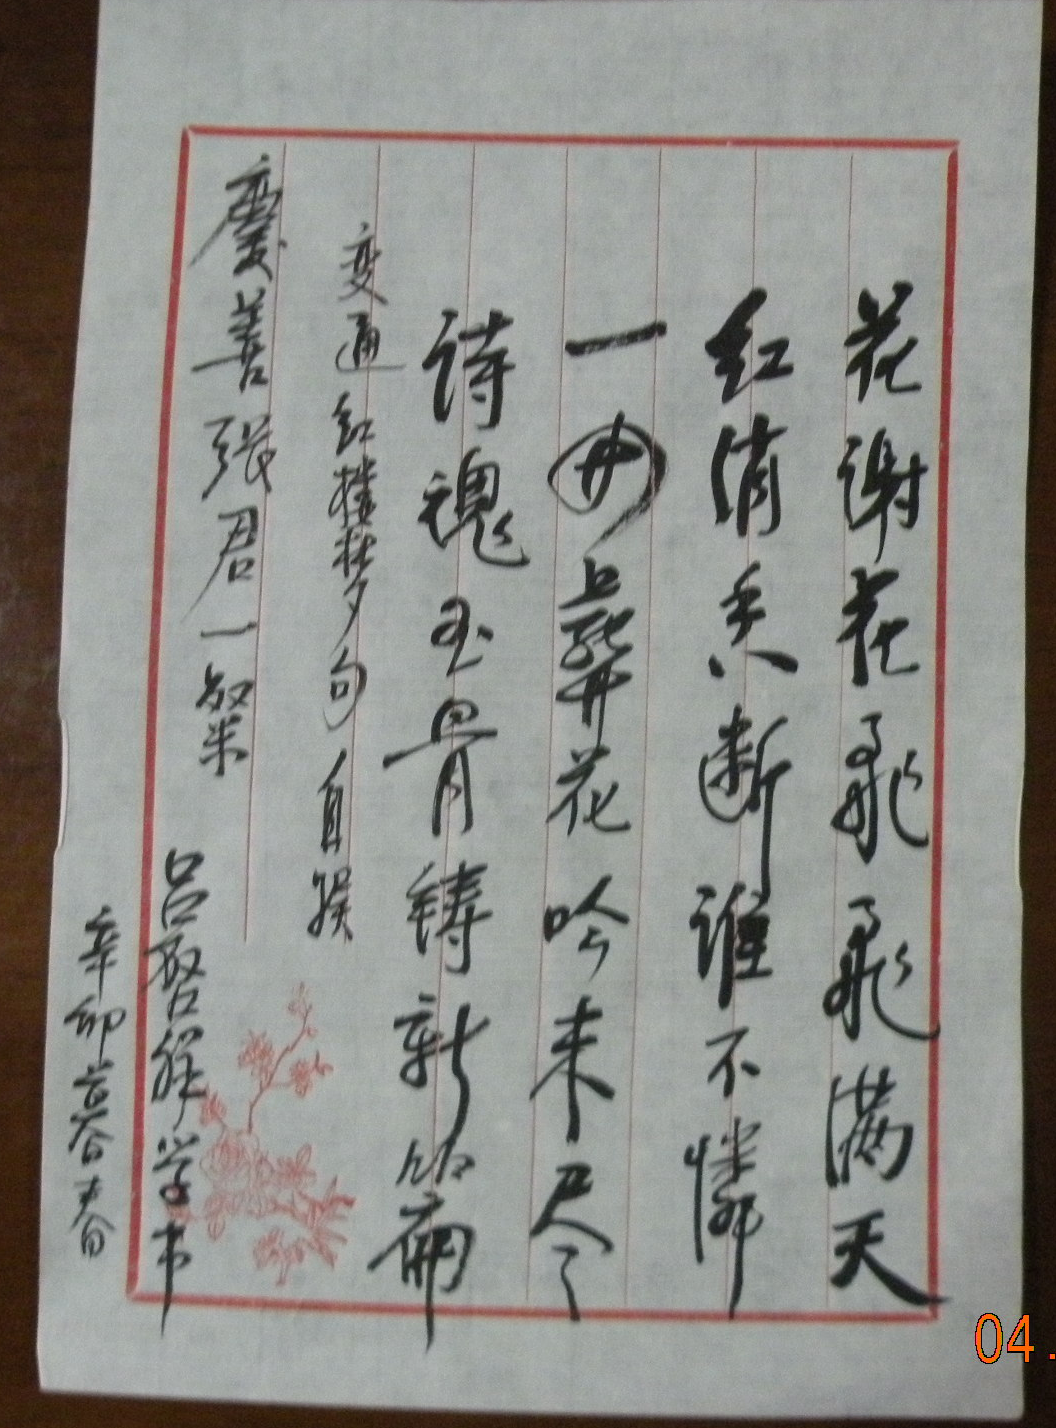 花谢花飞飞满天
红消香断谁不怜
一曲葬花吟未尽
诗魂玉骨铸新篇
变通红楼梦句自娱
庆善张君一粲
吕启祥学书
辛卯暮春
04.